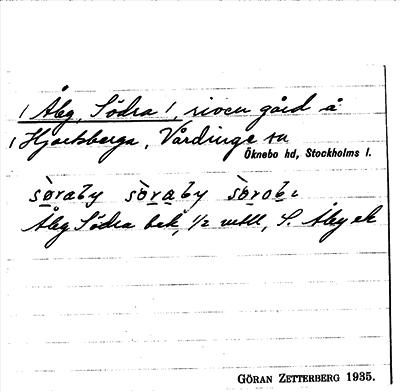 ( Åby, Södra ), riven gård å
( Hjortsberga, Vårdinge sn
Öknebo hd, Stockholms l.
sø̀raby sø̀raby sø̀robi
Åby Södra bek, 1/2 mtl, S. Åby ek
GÖRAN ZETTERBERG 1935.